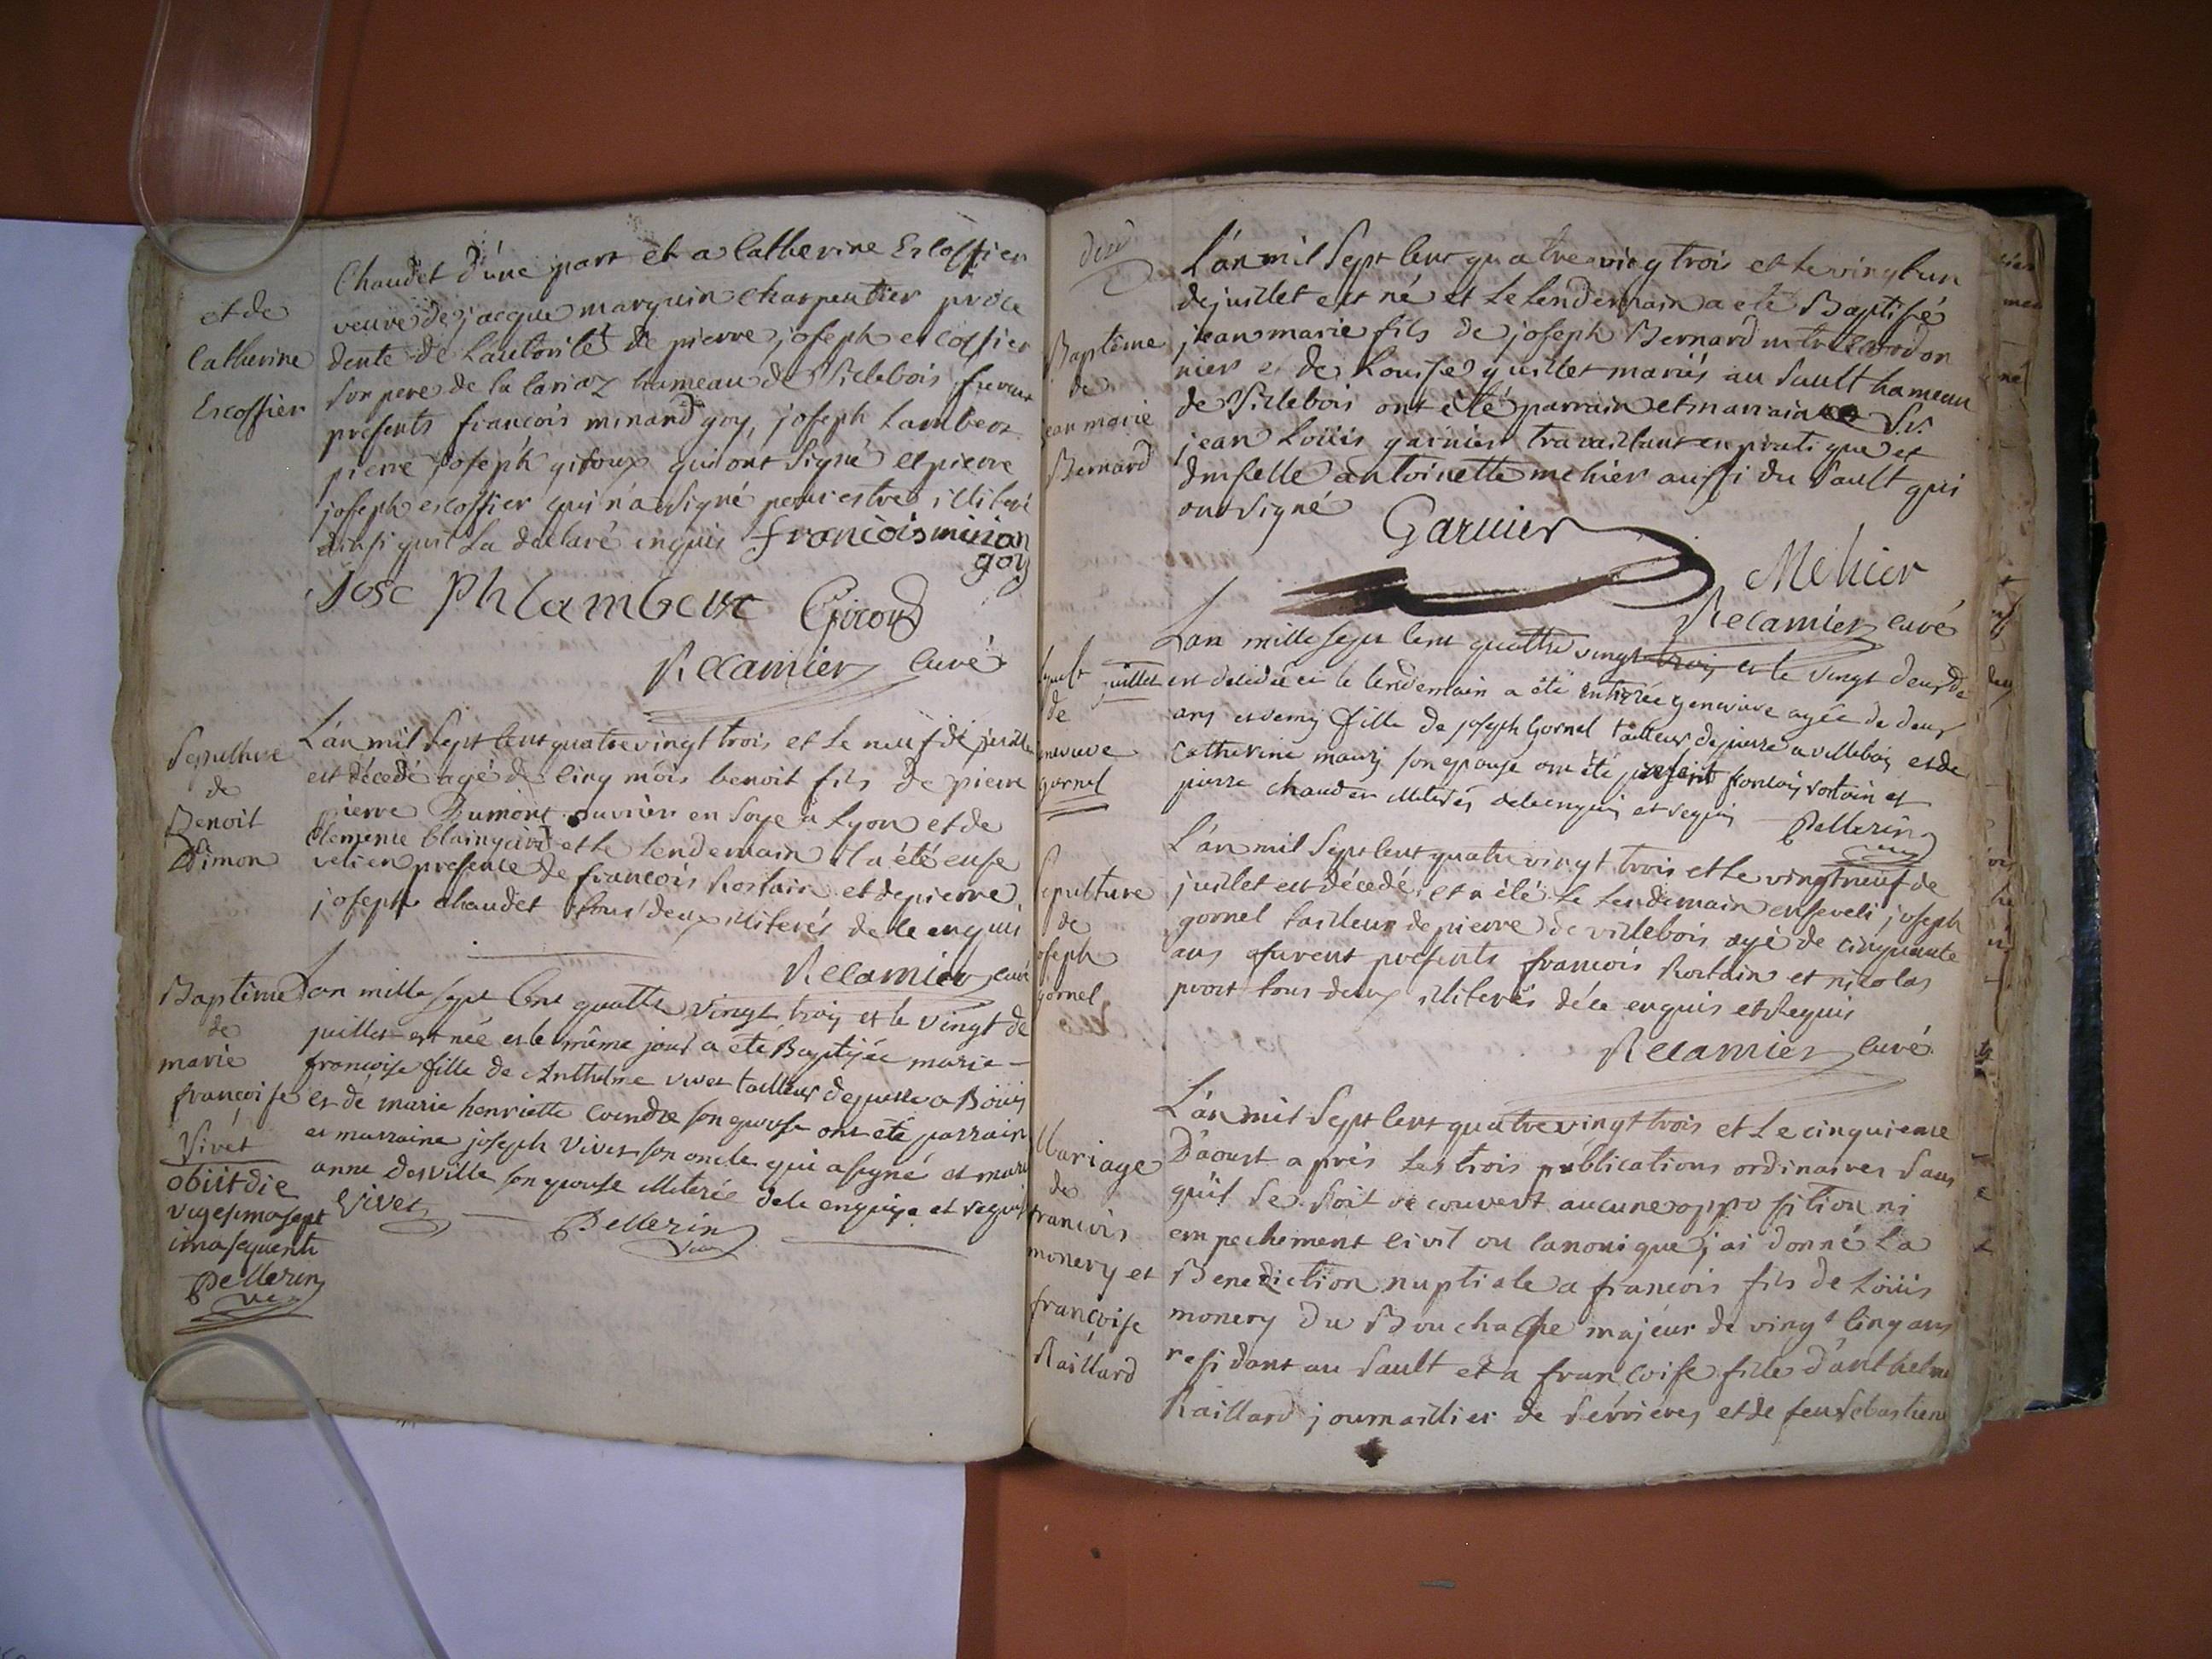 Chaudet d'une part et a Catherine Escoffier
veuve de jacque marquin charpentier proce
dente de L'autorité de pierre joseph escoffier
son pere de la lariaz hameau de Villebois furent
presents françois minand goy, joseph Lambert
pierre joseph giroux qui ont signé et pierre
joseph escoffier qui n'a signé pour estre illiteré
ainsi qu'il La declaré enquis françois minan
goy
Jose Ph lambert Giroud
Recamier curé
et de
Catherine
Escoffier
Sepulture
de
Benoit
Dimon
L'an mil sept cent quatre vingt trois et le neuf de juillet
est décedé agé de cinq mois benoit fils de pierre
pierre Dumont ouvrier en soye à Lyon et de
Clemence et le lendemain il a été ense
veli en presence de françois Rostain et de pierre
joseph chaudet tous deux illiterés de ce enquis
Recamier curé
Baptême
de
marie
françoise
Vivet
obiit die
vigesima sept
ima sequenti
Pellerin
vic
Lan mille sept Cent quattre vingt trois et le vingt de
juillet est née et le même jour a été Baptisée marie-
françoise fille de Anthelme vivet tailleur de pierre a Bouis
et de marie henriette Coindre son epouse ont été parrain
et marraine joseph Vivet son oncle qui a signé et marie
anne Desville son epouse illiterée de ce enquise et requise
Vivet Pellerin
vic
dud
Baptême
de
jean marie
Bernard
L'an mil sept cent quatre vingt trois et le vingt un
de juillet est né et le lendemain a eté Baptisé
jean marie fils de joseph Bernard mtre cordon
nier et de Louise guillet mariés au Sault hameau
de Villebois ont été parrain et marraine Sr.
jean Loüis garnier travaillant en pratique et
dmselle antoinette mehier aussi du Sault qui
ont signé
Garnier
Mehier
Recamier curé
sepult
de
genevieve
gornel
Lan mille sept Cent quattre vingt trois et le vingt deux de
juillet est decedée et le lendemain a été enterrée genevieve agée de deux
ans et demy fille de joseph Gornel tailleur de pierre a villebois et de
Catherine maurj son epouse ont été present françois rostain et
pierre chaudet illiterés de ce enquis et requis Pellerin
vic
Sepulture
de
joseph
gornel
L'an mil sept cent quatre vingt trois et le vingt neuf de
juillet est décedé, et a été le lendemain enseveli joseph
gornel tailleur de pierre de villebois agé de cinquante
ans furent presents françois Rostain et nicolas
prost tous deux illiterés de ce enquis et Requis
Recamier curé
Mariage
de
francois
monery et
françoise
Raillard
L'an mil sept cent quatre vingt trois et le cinquieme
D'aoust après les trois publications ordinaires sans
qu'il se soit découvert aucune opposition ni
empechement civil ou canonique, j'ai donné La
Benediction nuptiale a francois fils de Loüis
monery du Bouchage majeur de vingt cinq ans
residant au Sault et a françoise fille d'anthelme
Raillard journaillier de Serrieres et de feu Sebastiene